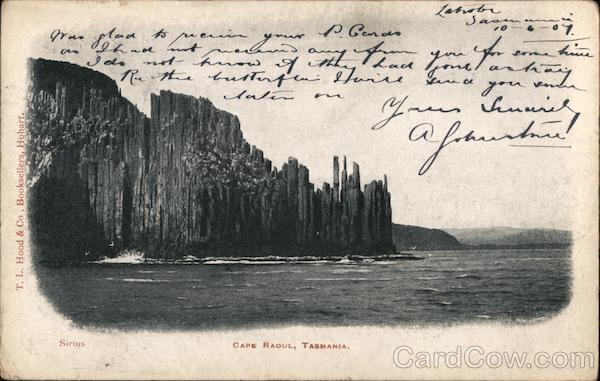 Latrobe
Tasmania
10-6-07
Was glad to receive your P. Cards
as I had not received any from you for some time
I do not know if they had gone astray
Re the butterflies I will send you some
later on
Yours Sincerely
A Johnstone
T. L. Hood & Co., Booksellers, Hobart.
Sirius
CAPE RAOUL, TASMANIA.
CardCow.com